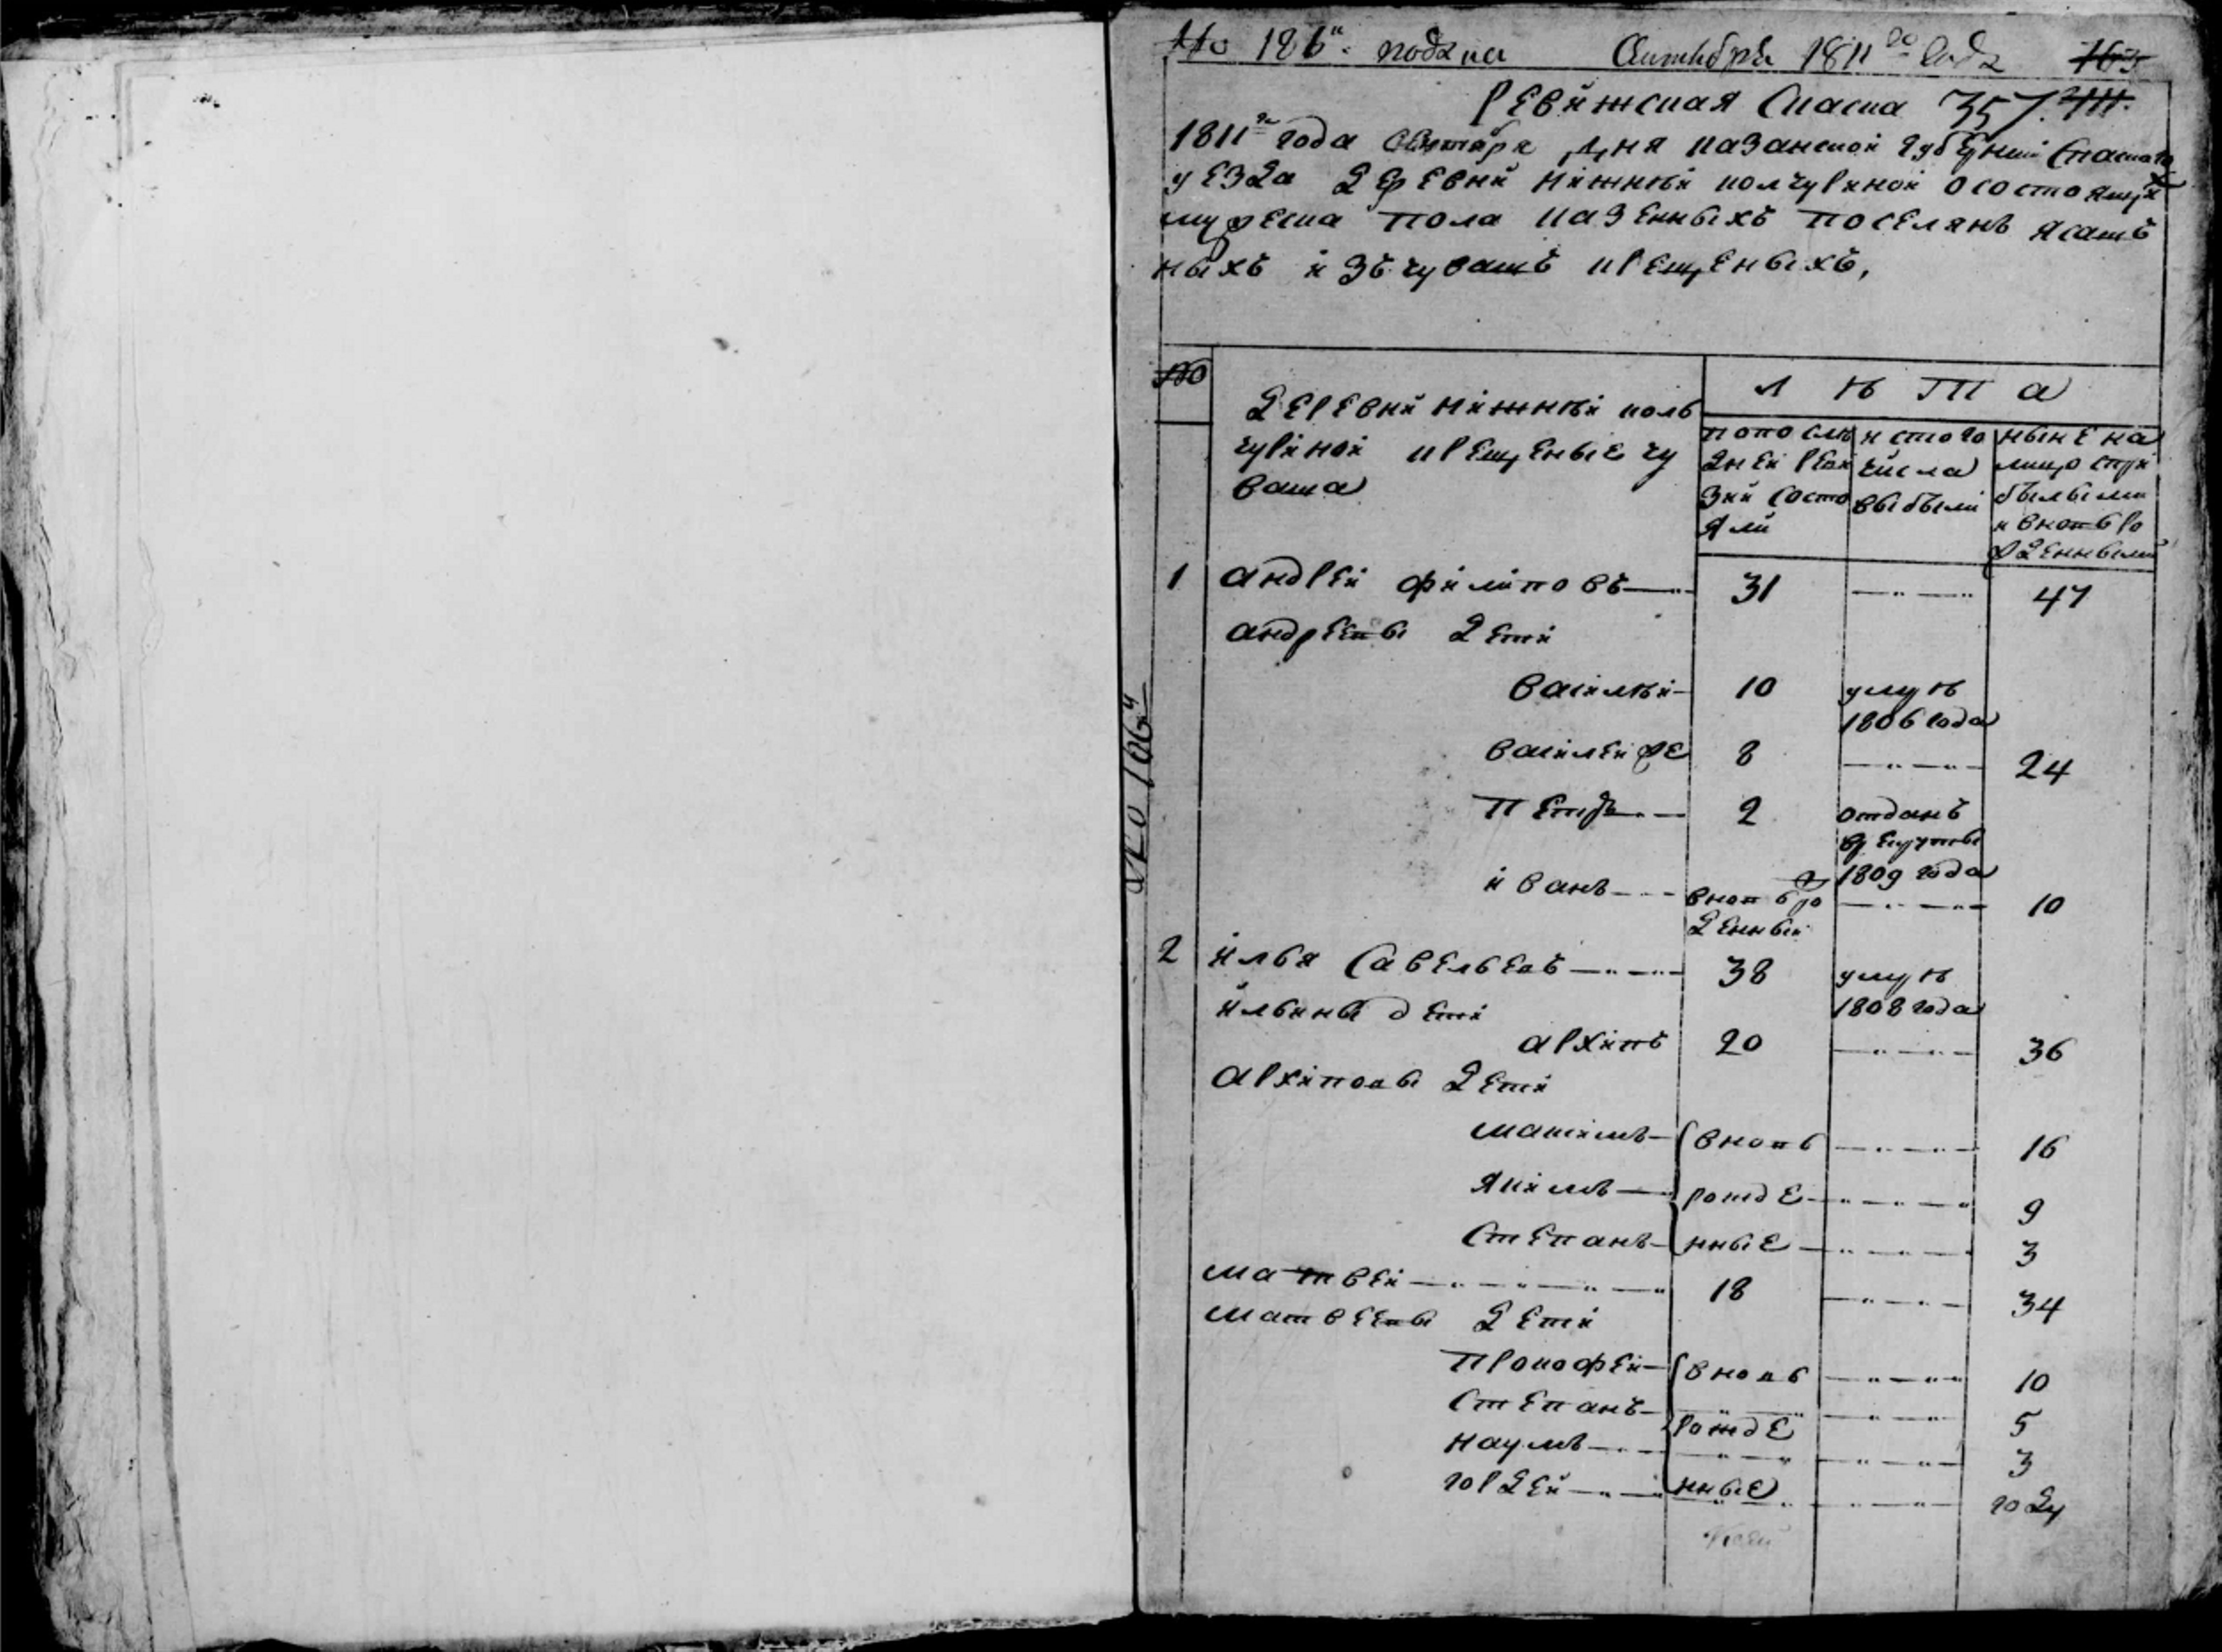 № 186й. подана Сентября 1811го года 163
Ревижская Сказка 357.
1811го года Сентября дня казанской губернии Спаскаго
уезда деревни нижней колчуриной о состоящих
мужеска пола казенныхъ поселянъ ясашъ
ныхъ изъ чувашъ крещеныхъ,
№
деревни нижней коль
чуриной крещеные чу
ваша
Л ѣ т а
по послѣ
дней реви
зии состо
яли
ис того
числа
выбыли
ныне на
лицо с при
былыми
и вновь ро
жденными
1 андрей филиповъ 31 47
андреевы дети
василей 10 умре
1806 года
василей же 8 24
Петръ 2 отданъ
в рекруты
1809 года
иванъ вновь ро
жденный 10
2 илья Савельевъ 38 умре
1808 года
ильины дети
архипъ 20 36
архиповы дети
максимъ вновь 16
якимъ рожде 9
Степанъ нные 3
матвей 18 34
матвеевы дети
Прокофей вновь 10
Степанъ 5
рожде
наумъ 3
гордей нные году